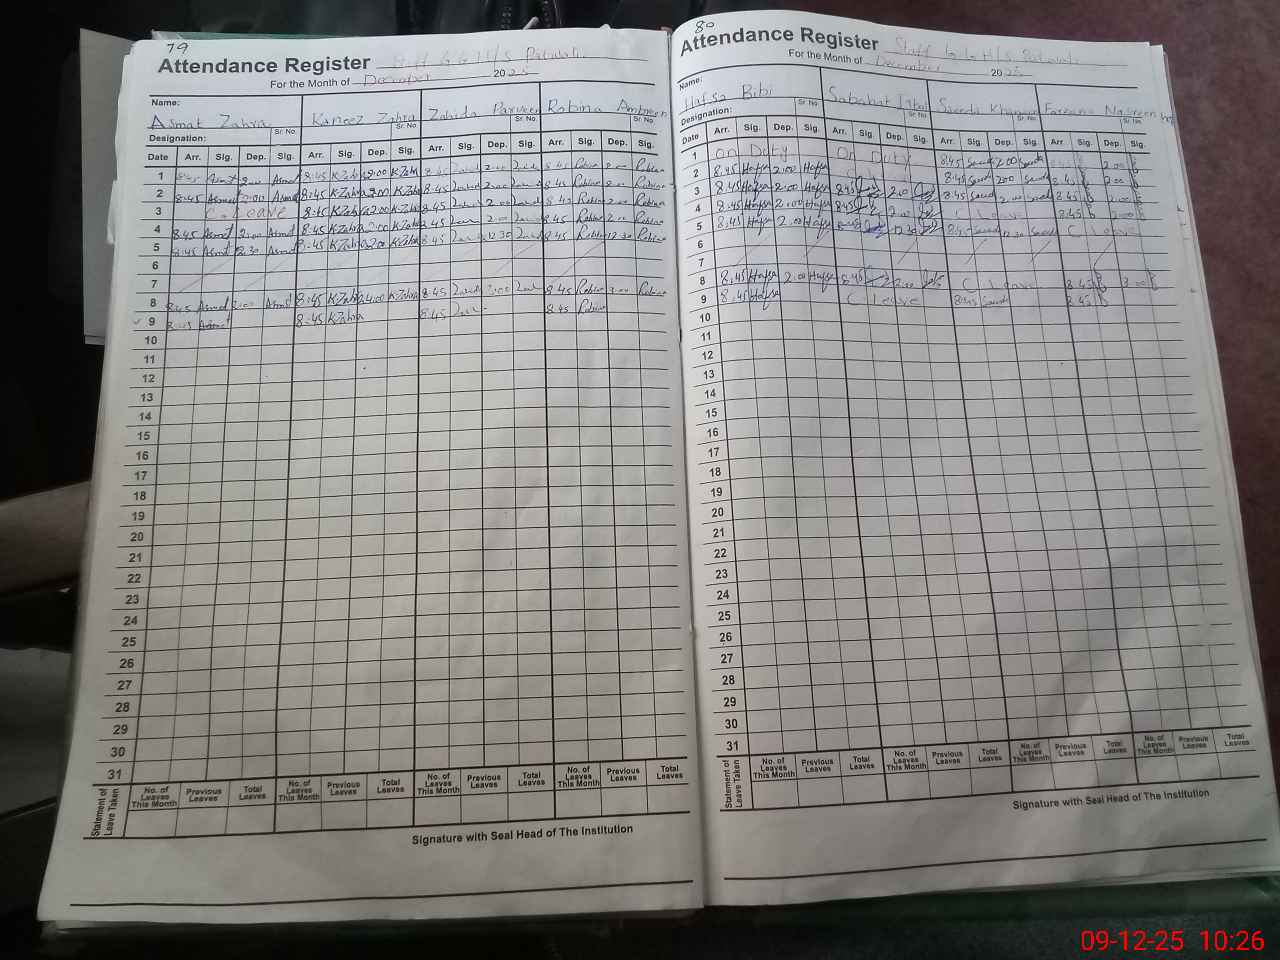 79
Attendance Register Staff G.G.H/S Patwali.
For the Month of December 2025
Name: Asmat Zahra Kaneez Zahra Zahida Parveen Robina Ambreen
Sr No. Sr No. Sr No. Sr No.
Designation:
Date Arr. Sig. Dep. Sig. Arr. Sig. Dep. Sig. Arr. Sig. Dep. Sig. Arr. Sig. Dep. Sig.
1 8:45 Asmat 2:00 Asmat 8:45 K Zahra 2:00 K Zahra 8:45 2:00 8:45 Robina 2:00 Robina
2 8:45 Asmat 2:00 Asmat 8:45 K Zahra 2:00 K Zahra 8:45 2:00 8:45 Robina 2:00 Robina
3 C. Leave 8:45 K Zahra 2:00 K Zahra 8:45 2:00 8:45 Robina 2:00 Robina
4 8:45 Asmat 2:00 Asmat 8:45 K Zahra 2:00 K Zahra 8:45 2:00 8:45 Robina 2:00 Robina
5 8:45 Asmat 12:30 Asmat 8:45 K Zahra K Zahra 8:45 12:30 8:45 Robina 12:30 Robina
6
7
8 8:45 Asmat 2:00 Asmat 8:45 K Zahra 2:00 K Zahra 8:45 2:00 8:45 Robina 2:00 Robina
9 8:45 Asmat 8:45 K Zahra 8:45 8:45 Robina
10
11
12
13
14
15
16
17
18
19
20
21
22
23
24
25
26
27
28
29
30
31
Statement of Leave Taken
No. of Leaves This Month Previous Leaves Total Leaves No. of Leaves This Month Previous Leaves Total Leaves No. of Leaves This Month Previous Leaves Total Leaves No. of Leaves This Month Previous Leaves Total Leaves
Signature with Seal Head of The Institution
80
Attendance Register Staff G.G.H/S Patwali
For the Month of December 2025
Name: Hafsa Bibi Sabahat Iqbal Saeeda Khanam Farzana Nasreen
Sr No. Sr No. Sr No. Sr No.
Designation:
Date Arr. Sig. Dep. Sig. Arr. Sig. Dep. Sig. Arr. Sig. Dep. Sig. Arr. Sig. Dep. Sig.
1 On Duty On Duty 8:45 Saeeda 2:00 Saeeda 8:45 2:00
2 8:45 Hafsa 2:00 Hafsa 8:45 Saeeda 2:00 Saeeda 8:45 2:00
3 8:45 Hafsa 2:00 Hafsa 8:45 2:00 8:45 Saeeda 2:00 Saeeda 8:45 2:00
4 8:45 Hafsa 2:00 Hafsa 8:45 2:00 C Leave 8:45 2:00
5 8:45 Hafsa 2:00 Hafsa 12:30 8:45 Saeeda 12:30 Saeeda C Leave
6
7
8 8:45 Hafsa 2:00 Hafsa 8:45 2:00 C Leave 8:45
9 8:45 Hafsa C Leave 8:45 Saeeda 8:45
10
11
12
13
14
15
16
17
18
19
20
21
22
23
24
25
26
27
28
29
30
31
Statement of Leave Taken
No. of Leaves This Month Previous Leaves Total Leaves No. of Leaves This Month Previous Leaves Total Leaves No. of Leaves This Month Previous Leaves Total Leaves No. of Leaves This Month Previous Leaves Total Leaves
Signature with Seal Head of The Institution
09-12-25 10:26